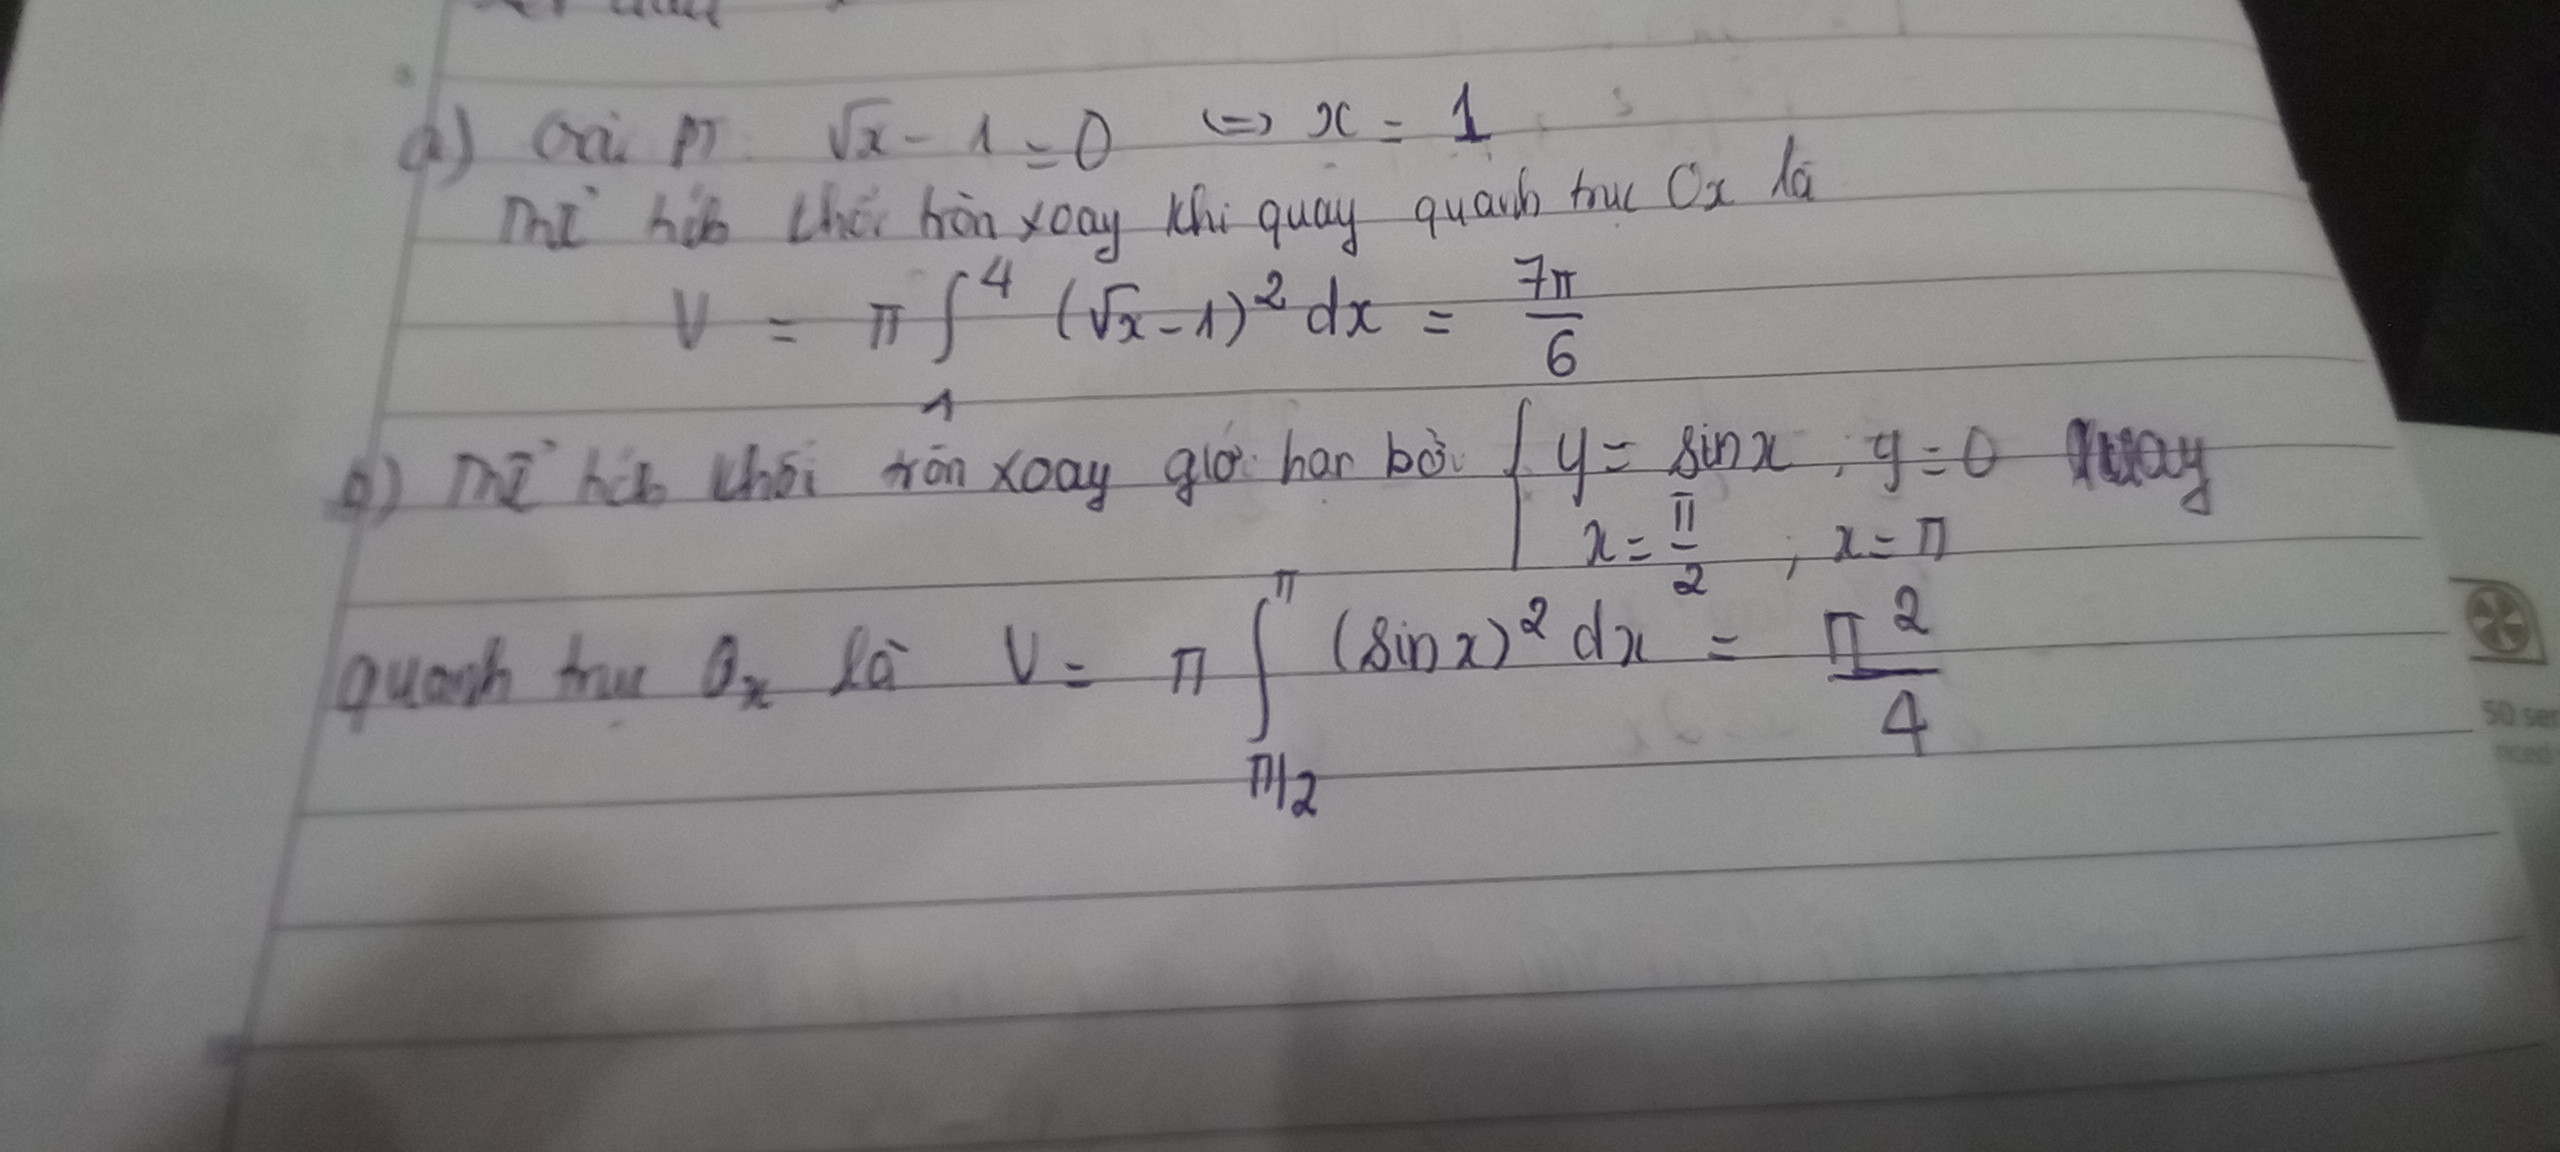 a) Giải PT: √x - 1 = 0 <=> x = 1
Thể tích khối tròn xoay khi quay quanh trục Ox là
V = π ∫₁⁴ (√x - 1)² dx = 7π/6
b) Thể tích khối tròn xoay giới hạn bởi { y = sinx ; y = 0 quay
x = π/2 ; x = π
quanh trục Ox là V = π ∫_{π/2}^{π} (sinx)² dx = π²/4
50 ser